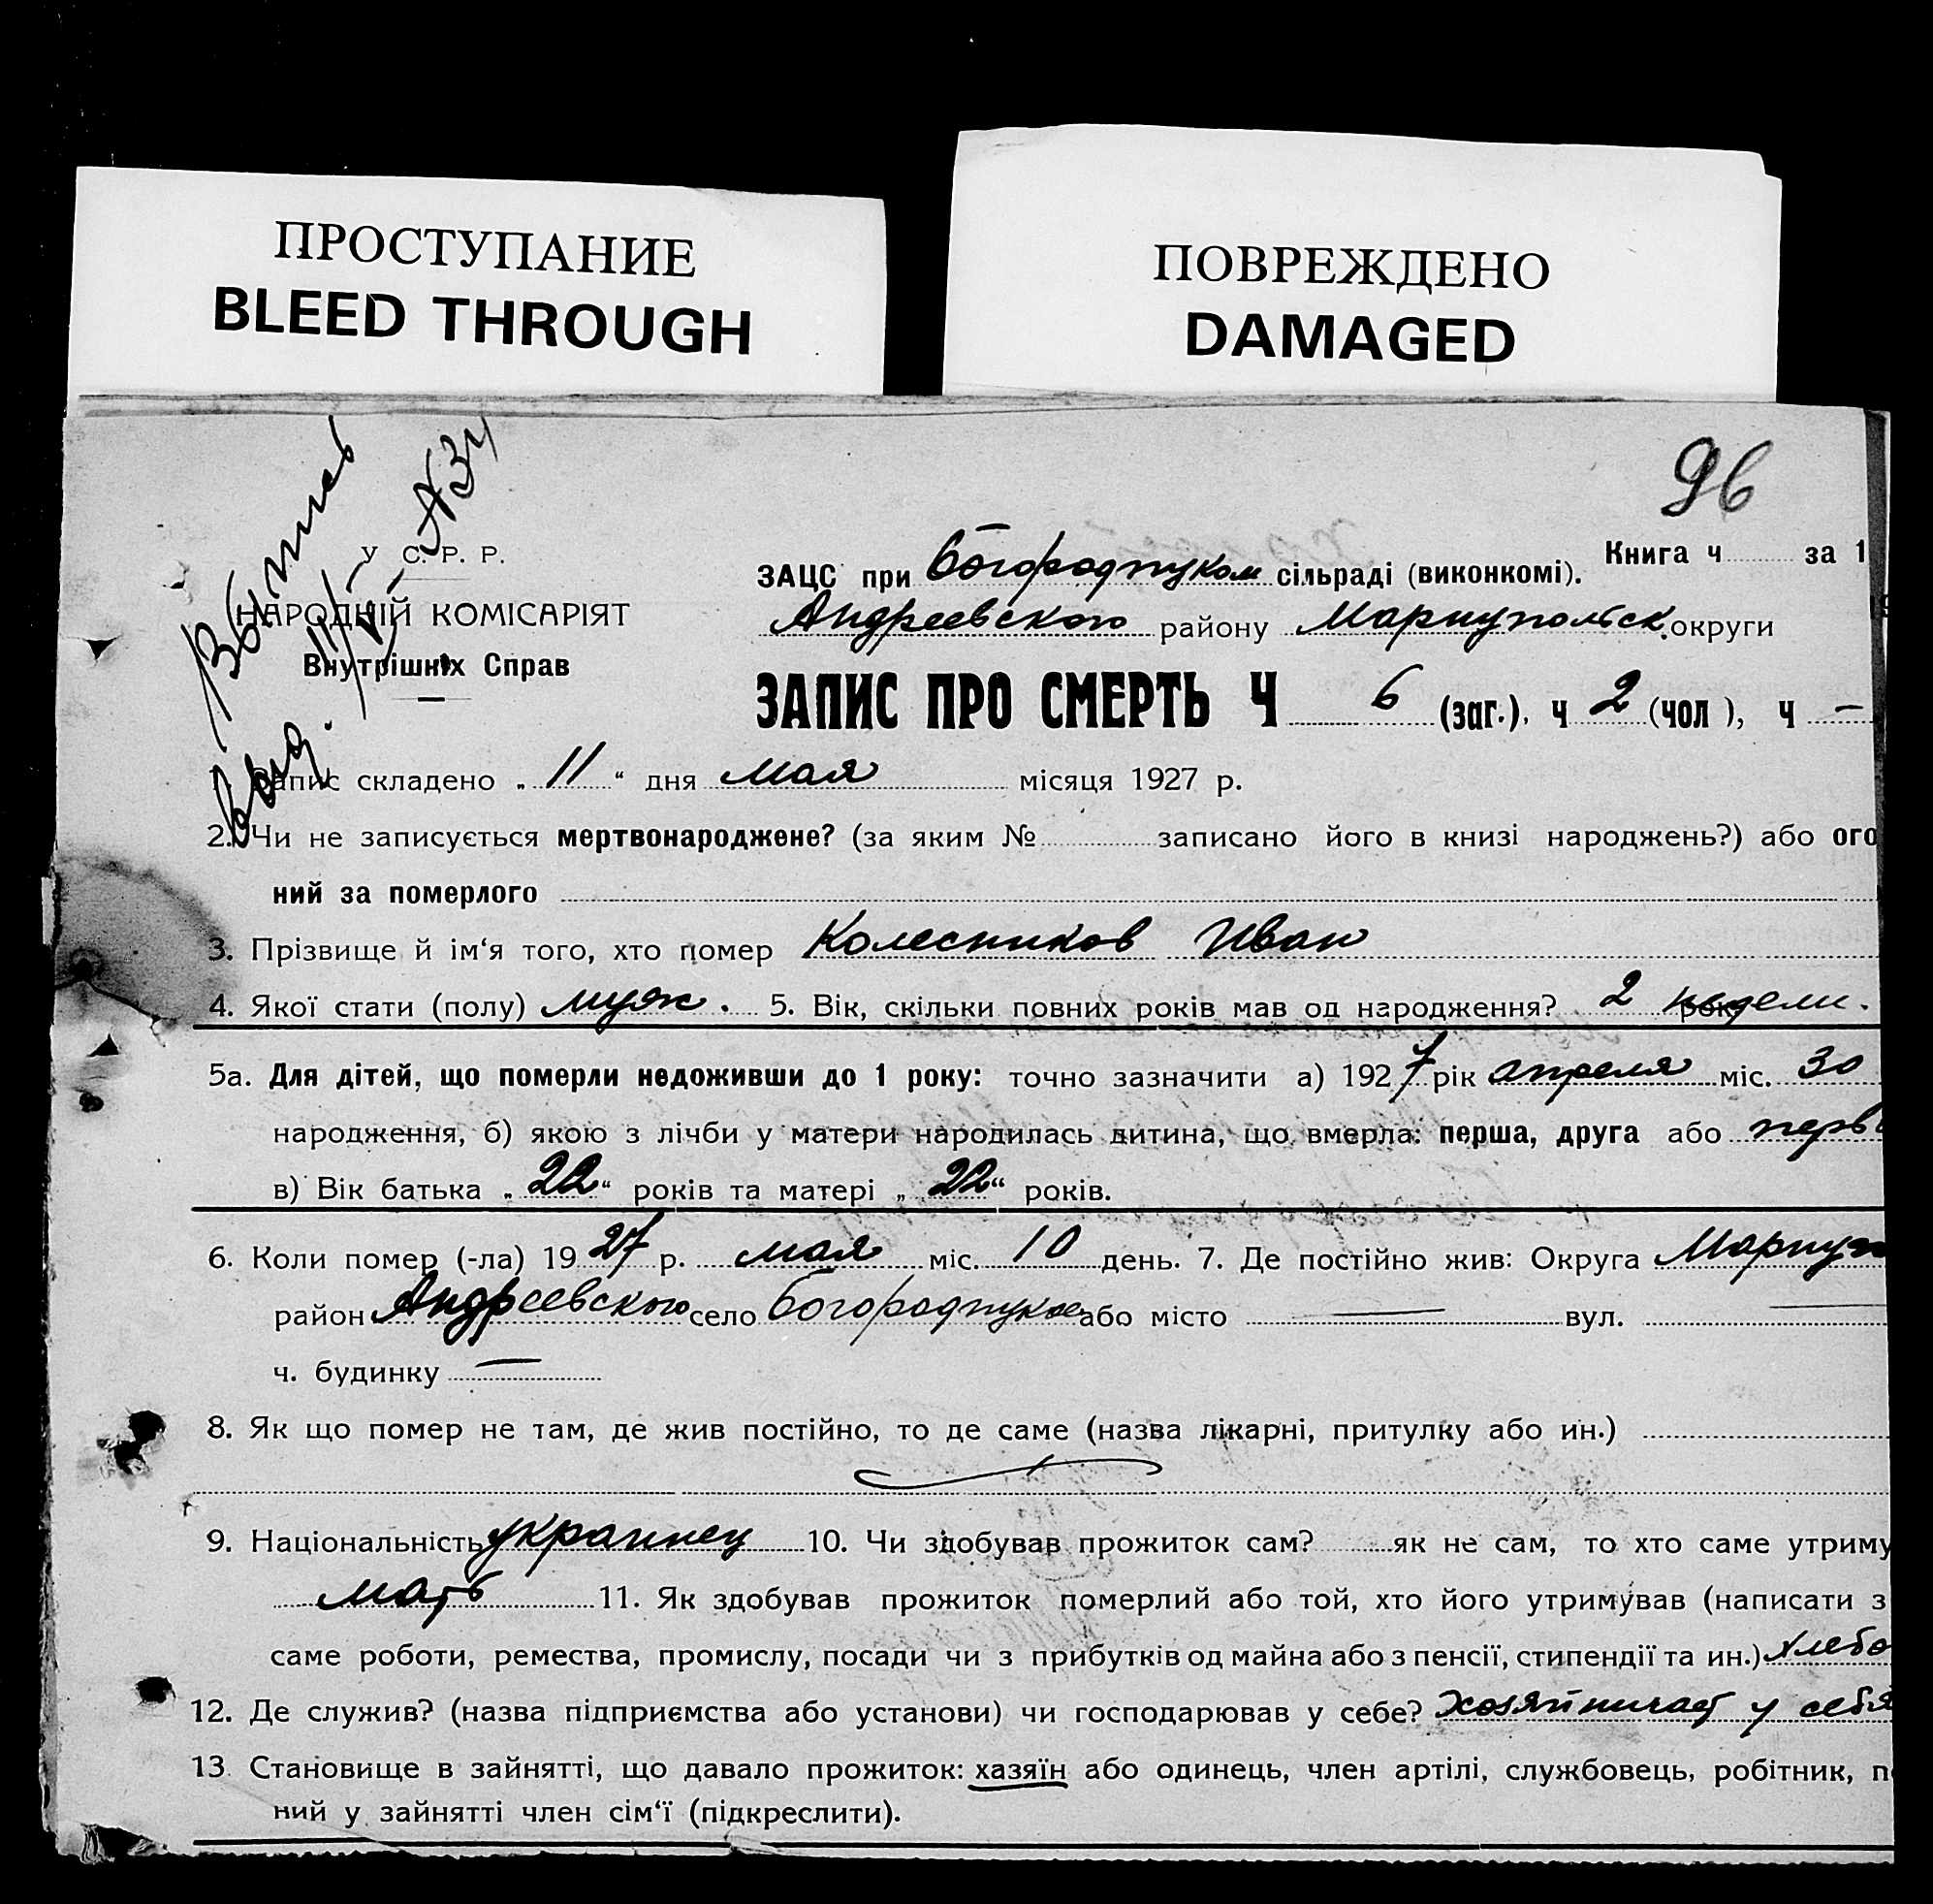 ПРОСТУПАНИЕ
BLEED THROUGH
ПОВРЕЖДЕНО
DAMAGED
96
У. С. Р. Р.
НАРОДНІЙ КОМІСАРІЯТ
Внутрішніх Справ
Книга ч за 1
ЗАЦС при Богородицком сільраді (виконкомі).
Андреевского району Мариупольск. округи
ЗАПИС ПРО СМЕРТЬ Ч 6 (заг.). ч 2 (чол ), ч —
1. Запис складено „ 11 “ дня мая місяця 1927 р.
2. Чи не записується мертвонароджене? (за яким № записано його в книзі народжень?) або ого
ний за померлого
3. Прізвище й ім‘я того, хто помер Колесников Иван
4. Якої стати (полу) муж. 5. Вік, скільки повних років мав од народження? 2 недели.
5а. Для дітей, що померли недоживши до 1 року: точно зазначити а) 1927 рік апреля міс. 30
народження, б) якою з лічби у матери народилась дитина, що вмерла: перша, друга або перв
в) Вік батька „ 22 “ років та матері „ 22 “ років.
6. Коли помер (-ла) 1927 р. мая міс. 10 день. 7. Де постійно жив: Округа Мариуп
район Андреевского село Богородицкое або місто — вул. —
ч. будинку —
8. Як що помер не там, де жив постійно, то де саме (назва лікарні, притулку або ин.)
9. Національність украинец 10. Чи здобував прожиток сам? як не сам, то хто саме утриму
мать 11. Як здобував прожиток померлий або той, хто його утримував (написати з
саме роботи, ремества, промислу, посади чи з прибутків од майна або з пенсії, стипендії та ин.) хлебо
12. Де служив? (назва підприємства або установи) чи господарював у себе? хозяйничает у себя
13. Становище в зайнятті, що давало прожиток: хазяїн або одинець, член артілі, службовець, робітник, п
ний у зайнятті член сім‘ї (підкреслити).